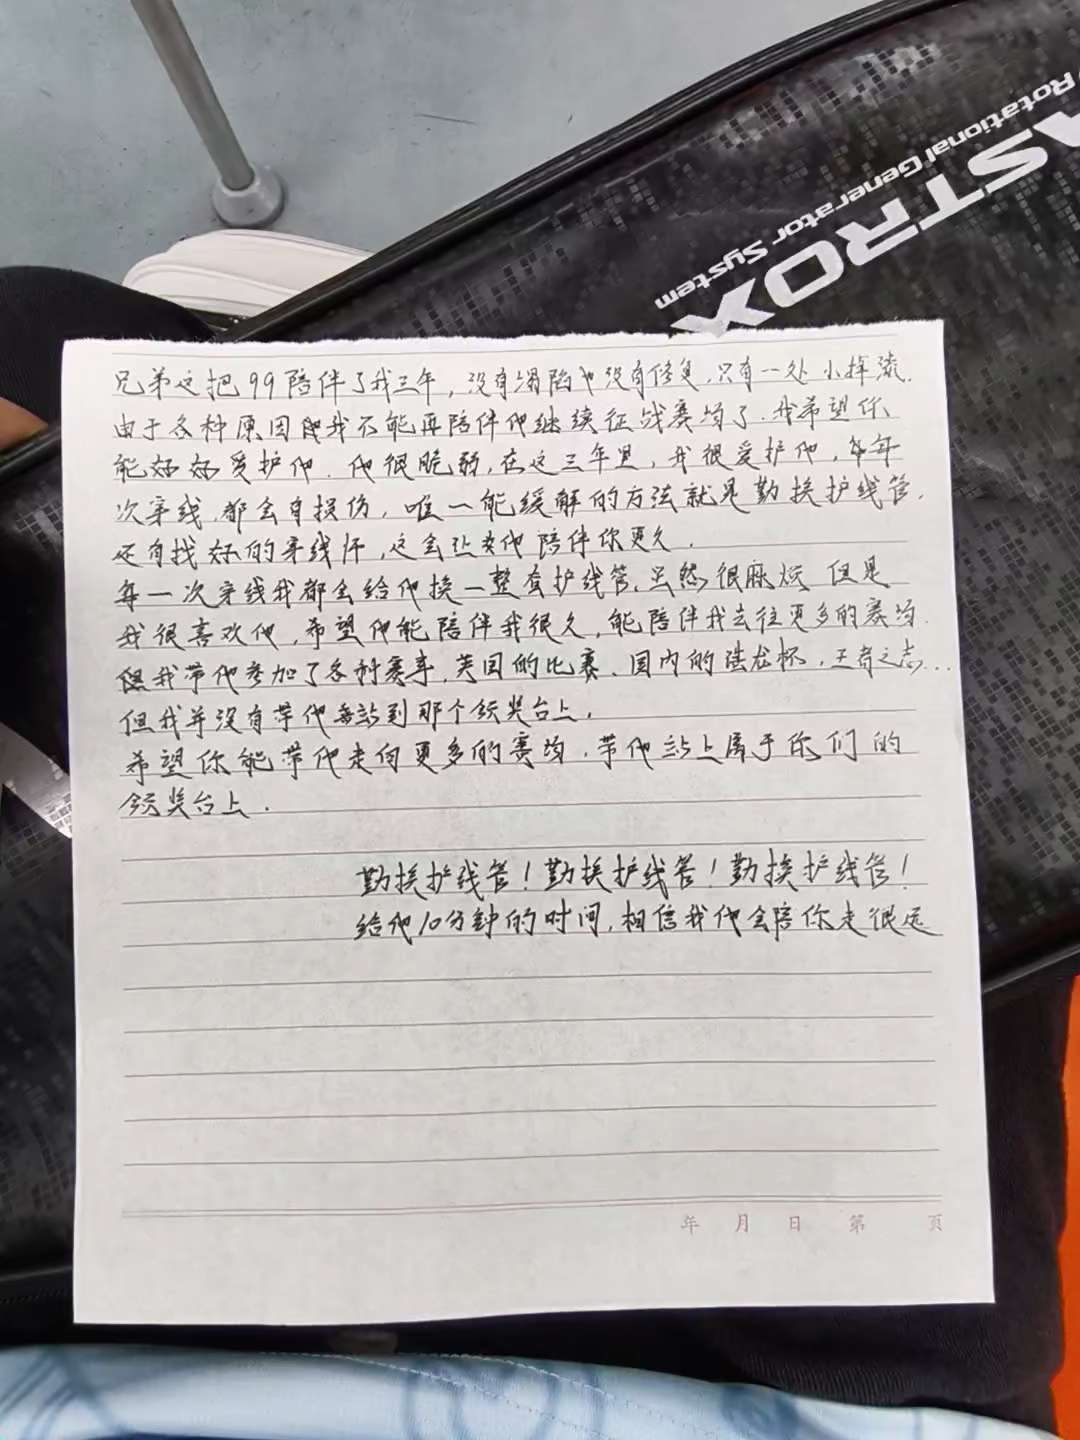 ASTROX
Rotational Generator System
兄弟这把99陪伴了我三年，没有塌陷也没有修复，只有一处小掉漆．
由于各种原因我不能再陪伴他继续征战赛场了．我希望你
能好好爱护他．他很脆弱，在这三年里，我很爱护他，每
次穿线，都会有损伤，唯一能缓解的方法就是勤换护线管．
还有找好的穿线师，这会让他陪伴你更久．
每一次穿线我都会给他换一整套护线管．虽然很麻烦 但是
我很喜欢他，希望他能陪伴我很久，能陪伴我去往更多的赛场．
但我带他参加了各种赛事，英国的比赛、国内的浩龙杯，王者之志…
但我并没有带他站到那个领奖台上．
希望你能带他走向更多的赛场．带他站上属于你们的
领奖台上．
勤换护线管！勤换护线管！勤换护线管！
给他10分钟的时间，相信我他会陪你走很远
年 月 日 第 页